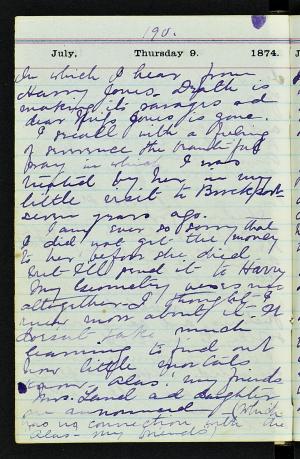 190.
July, Thursday 9. 1874.
In which I hear from
Harry Jones. Death is
making its ravages and
dear Mrs Jones is gone.
I recall with a feeling
of the beautiful
way in which I was
treated by her in my
little visit to Brockport
seven years ago.
I am ever so sorry that
I did not get the money
to her before she died
but I'll send it to Harry
My Geometry
altogether. I thought I
knew more about it. It
doesn't take much
learning to find out
how little mortals
know, alas! my friends
Mrs. Land and daughter
are announced (which
has no connection with the
alas - my friends)